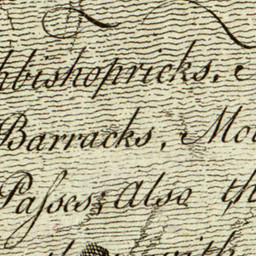 hbishopricks.
Barracks, Mo
Paſses; Also th
with